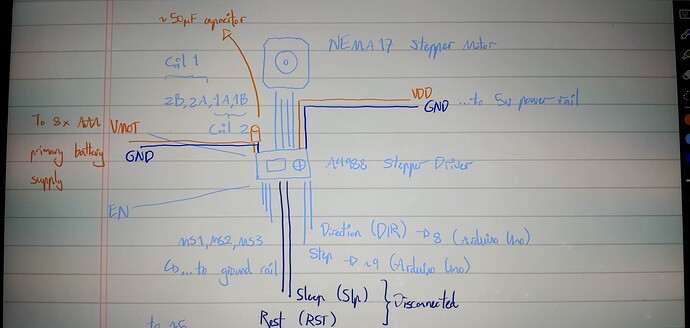 ~50µF capacitor
NEMA 17 Stepper Motor
Coil 1
2B, 2A, 1A, 1B
Coil 2
VDD
GND ...to 5v power rail
To 8x AA
primary battery
supply
VMOT
GND
A4988 Stepper Driver
EN
MS1, MS2, MS3
...to ground rail
Direction (DIR) → 8 (Arduino Uno)
Step → ~9 (Arduino Uno)
Sleep (Slp)
Rest (RST)
Disconnected